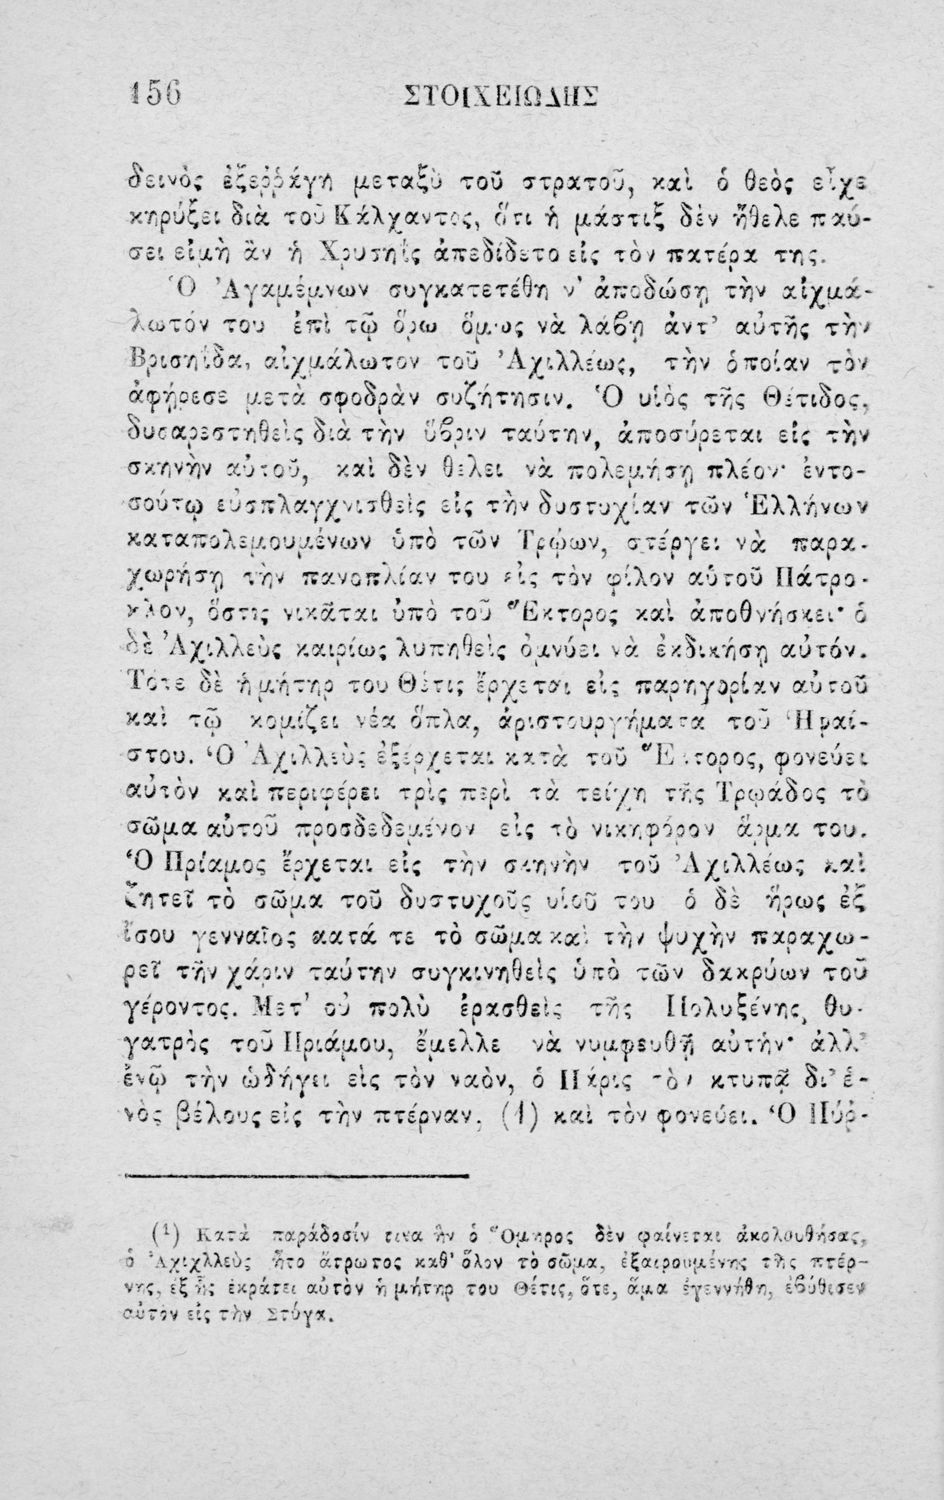 156 ΣΤΟΙΧΕΙΩΔΗΣ
δεινὸς ἐξερῤάγη μεταξὺ τοῦ στρατοῦ, καὶ ὁ θεὸς εἶχε
κηρύξει διὰ τοῦ Κάλχαντος, ὅτι ἡ μάστιξ δὲν ἤθελε παύ-
σει εἰμὴ ἂν ἡ Χρυσηῒς ἀπεδίδετο εἰς τὸν πατέρα της.
Ὁ Ἀγαμέμνων συγκατετέθη ν' ἀποδώσῃ τὴν αἰχμά-
λωτόν του ἐπὶ τῷ ὅρῳ ὅμως νὰ λάβῃ ἀντ' αὐτῆς τὴν
Βρισηΐδα, αἰχμάλωτον τοῦ Ἀχιλλέως, τὴν ὁποίαν τὸν
ἀφήρεσε μετὰ σφοδρὰν συζήτησιν. Ὁ υἱὸς τῆς Θέτιδος,
δυσαρεστηθεὶς διὰ τὴν ὕβριν ταύτην, ἀποσύρεται εἰς τὴν
σκηνὴν αὐτοῦ, καὶ δὲν θέλει νὰ πολεμήσῃ πλέον· ἐντο-
σούτῳ εὐσπλαγχνισθεὶς εἰς τὴν δυστυχίαν τῶν Ἑλλήνων
καταπολεμουμένων ὑπὸ τῶν Τρώων, στέργει νὰ παρα-
χωρήσῃ τὴν πανοπλίαν του εἰς τὸν φίλον αὑτοῦ Πάτρο-
κλον, ὅστις νικᾶται ὑπὸ τοῦ Ἕκτορος καὶ ἀποθνήσκει· ὁ
δὲ Ἀχιλλεὺς καιρίως λυπηθεὶς ὀμνύει νὰ ἐκδικήσῃ αὐτόν.
Τότε δὲ ἡ μήτηρ του Θέτις ἔρχεται εἰς παρηγορίαν αὐτοῦ
καὶ τῷ κομίζει νέα ὅπλα, ἀριστουργήματα τοῦ Ἡφαί-
στου. Ὁ Ἀχιλλεὺς ἐξέρχεται κατὰ τοῦ Ἕκτορος, φονεύει
αὐτὸν καὶ περιφέρει τρὶς περὶ τὰ τείχη τῆς Τρῳάδος τὸ
σῶμα αὐτοῦ προσδεδεμένον εἰς τὸ νικηφόρον ἅρμα του.
Ὁ Πρίαμος ἔρχεται εἰς τὴν σκηνὴν τοῦ Ἀχιλλέως καὶ
ζητεῖ τὸ σῶμα τοῦ δυστυχοῦς υἱοῦ του ὁ δὲ ἥρως ἐξ
ἴσου γενναῖος κατά τε τὸ σῶμα καὶ τὴν ψυχὴν παραχω-
ρεῖ τὴν χάριν ταύτην συγκινηθεὶς ὑπὸ τῶν δακρύων τοῦ
γέροντος. Μετ' οὐ πολὺ ἐρασθεὶς τῆς Πολυξένης, θυ-
γατρὸς τοῦ Πριάμου, ἔμελλε νὰ νυμφευθῇ αὐτήν· ἀλλ'
ἐνῷ τὴν ὡδήγει εἰς τὸν ναὸν, ὁ Πάρις τὸν κτυπᾷ δι' ἑ-
νὸς βέλους εἰς τὴν πτέρναν, (1) καὶ τὸν φονεύει. Ὁ Πύῤ-
(1) Κατὰ παράδοσίν τινα ἣν ὁ Ὅμηρος δὲν φαίνεται ἀκολουθήσας,
ὁ Ἀχιχλλεὺς ἦτο ἄτρωτος καθ' ὅλον τὸ σῶμα, ἐξαιρουμένης τῆς πτέρ-
νης, ἐξ ἧς ἐκράτει αὐτὸν ἡ μήτηρ του Θέτις, ὅτε, ἅμα ἐγεννήθη, ἐβύθισεν
αὐτὸν εἰς τὴν Στύγα.